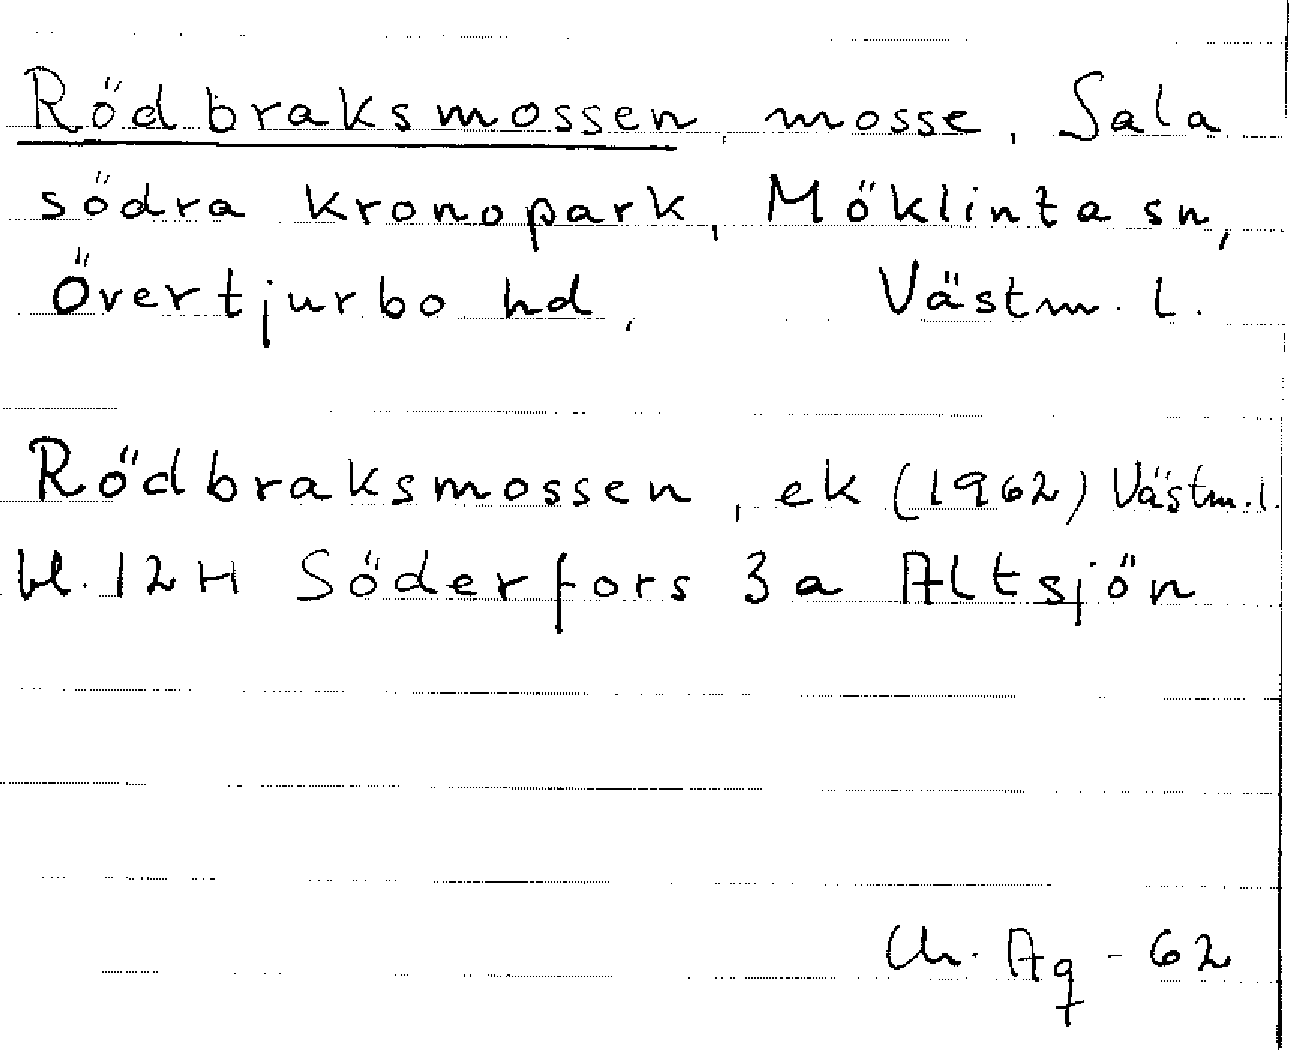 Rödbraksmossen, mosse, Sala
södra kronopark, Möklinta sn,
Övertjurbo hd, Västm. l.
Rödbraksmossen, ek (1962) Västm. l.
bl. 12H Söderfors 3a Altsjön
Ch. Aq - 62